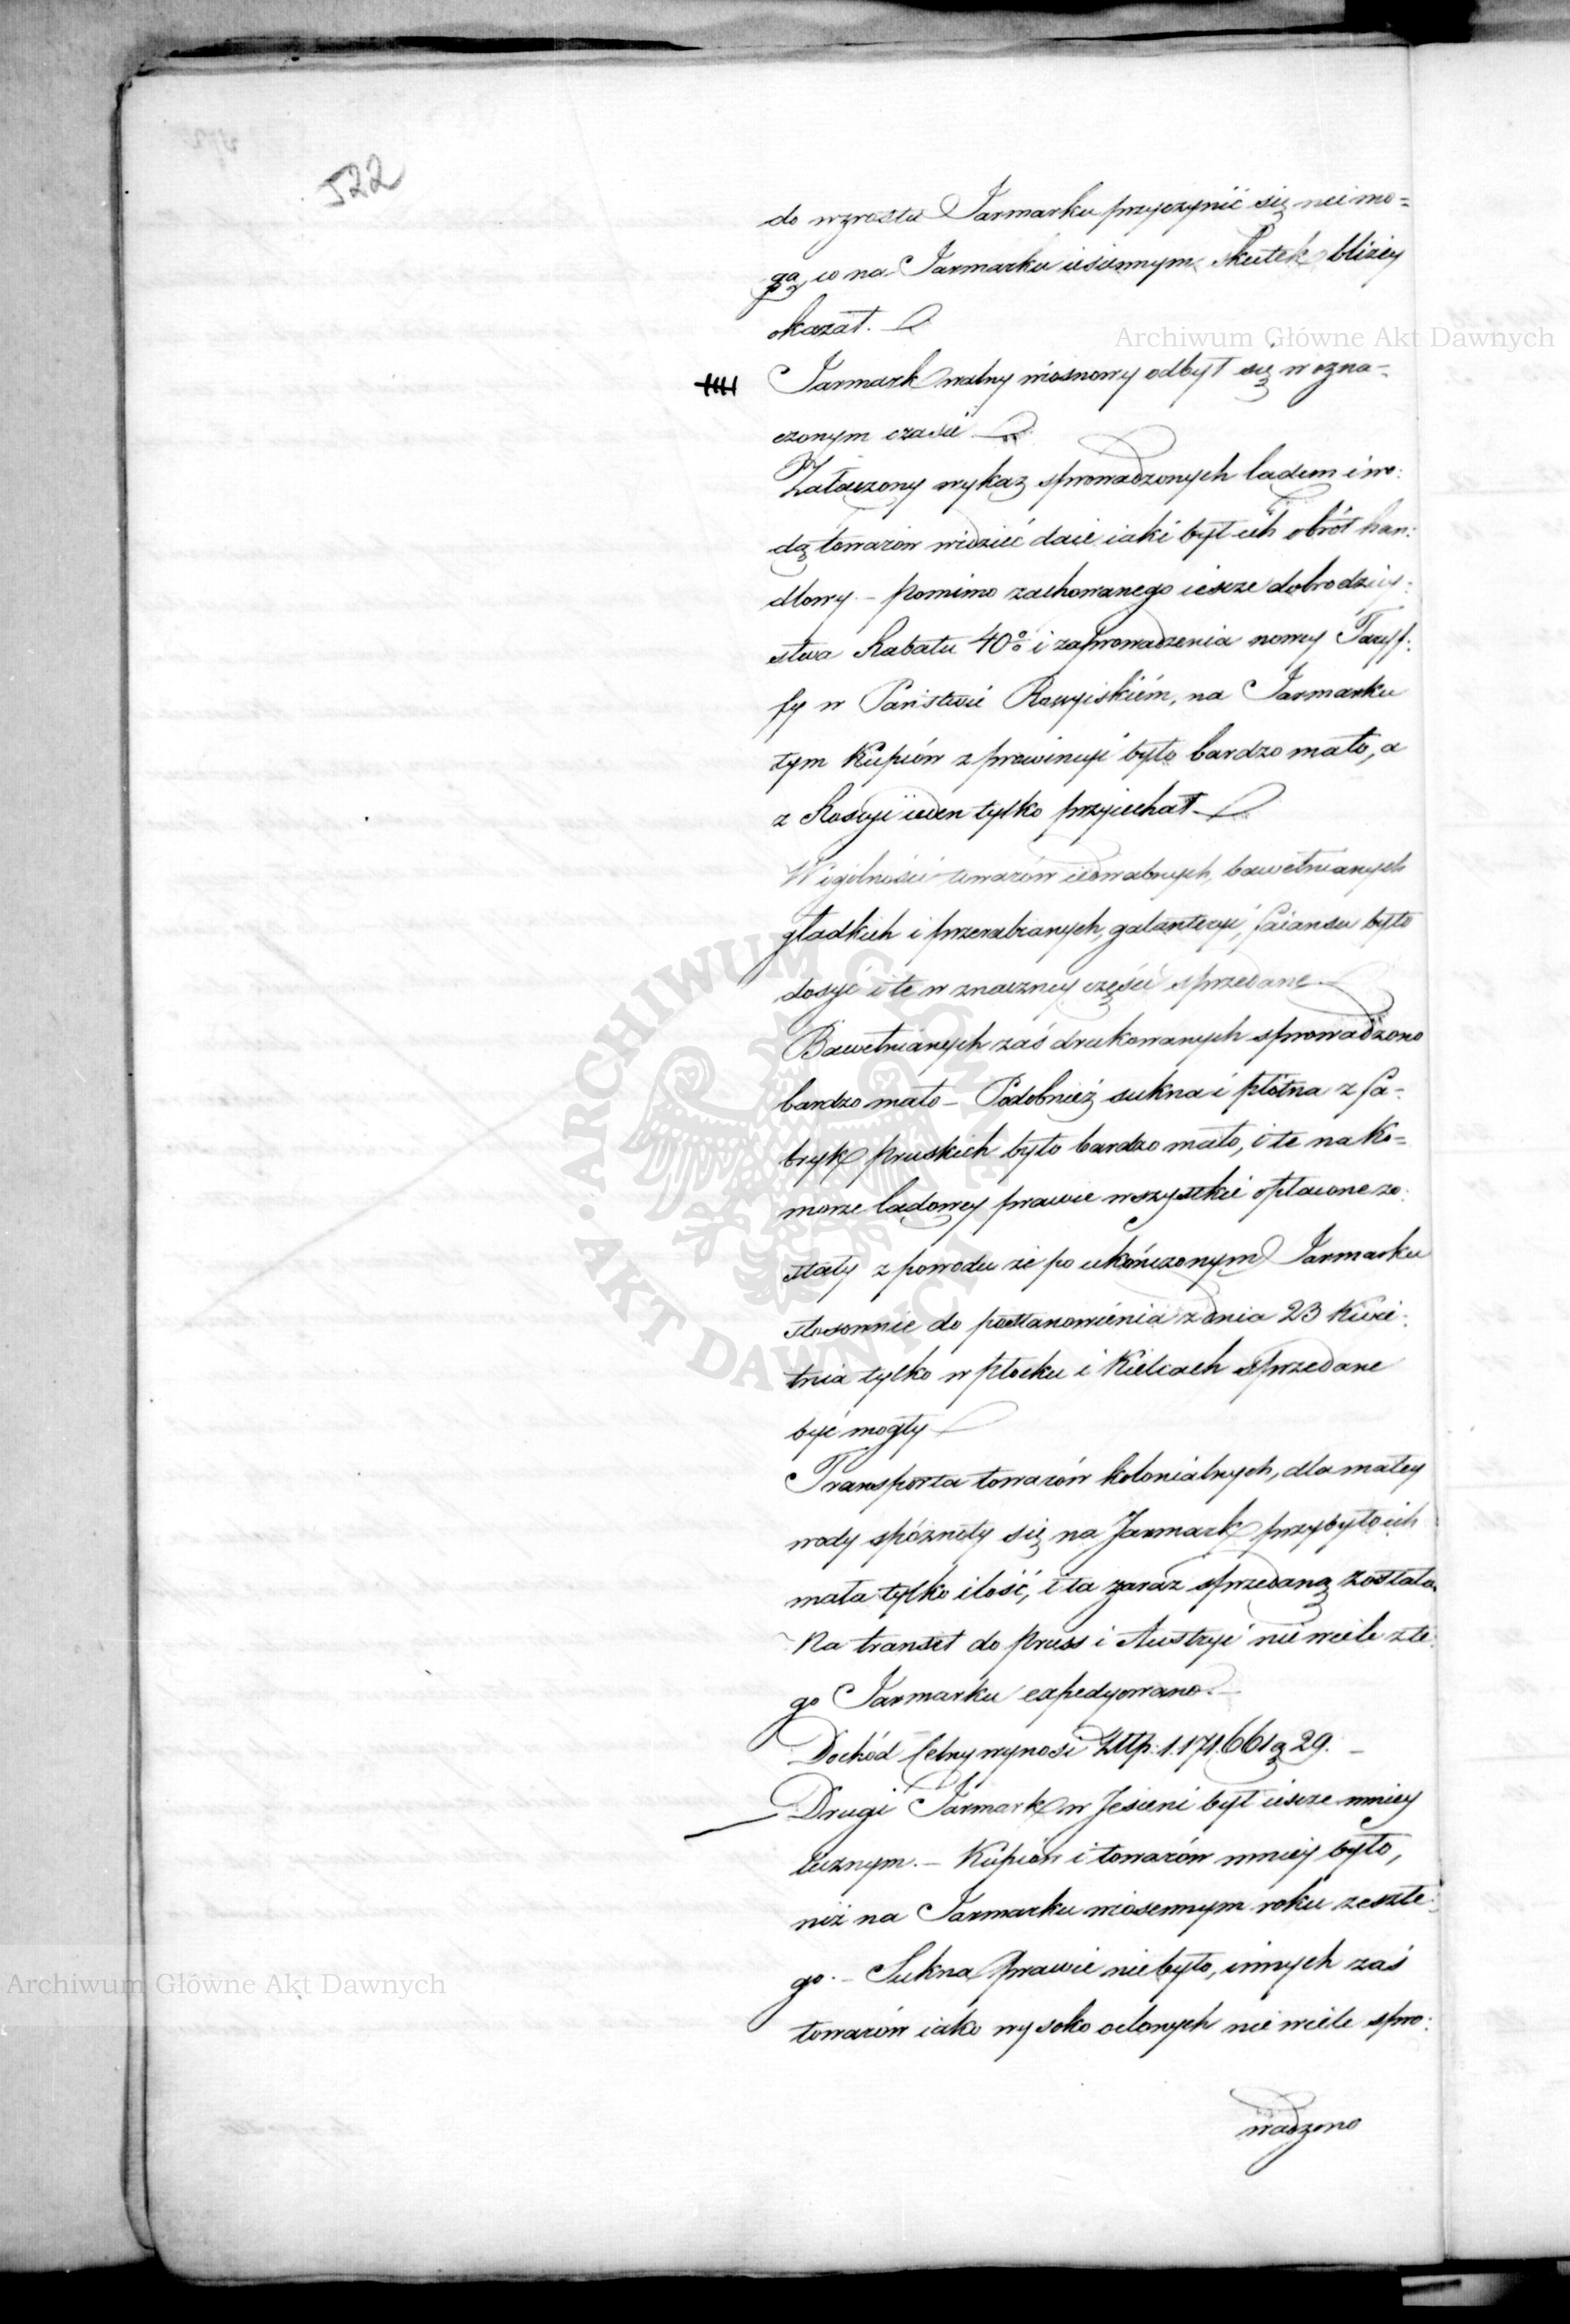 522
do wzrostu Jarmarku przyczynić się nie mo=
gą, co na Jarmarku iesiennym skutek bliżey
okazał.
Jarmark walny wiosnowy odbył się w ozna=
czonym czasie
Załączony wykaz sprowadzonych lądem i wo:
dą towarów widzieć daie iaki był ich obrót han:
dlowy. – Pomimo zachowanego iescze dobrodziey:
stwa Rabatu 40% i zaprowadzenia nowey Taryf:
fy w Państwie Rossyiskiém, na Jarmarku
tym Kupców z prowincyi było bardzo mało, a
z Rossyi ieden tylko przyiechał
W ogólności towarów iedwabnych, bawełnianych
gładkich i przerabianych, galanteryi, faiansu było
dosyć i te w znaczney części sprzedane
Bawełnianych zaś drukowanych sprowadzono
bardzo mało – Podobnież sukna i płótna z fa=
bryk pruskich było bardzo mało, i te na Ko=
morze lądowey prawie wszystkie opłacone zo:
stały z powodu że po ukończonym Jarmarku
stosownie do postanowienia z dnia 23 Kwie:
tnia tylko w płocku i Kielcach sprzedane
być mogły
Transporta towarów kolonialnych, dla małey
wody spóźniły się na Jarmark przybyło ich
mała tylko ilość, i ta zaraz sprzedaną została.
Na transit do Pruss i Austryi nie wiele z te:
go Jarmarku expedyowano. –
Dochód Celny wynosi Złtp: 1.171.661 g 29. –
Drugi Jarmark w Jesieni był iescze mniey
licznym. – Kupców i towarów mniey było,
niż na Jarmarku wiosennym roku zeszłe:
go. – Sukna prawie niebyło, innych zaś
towarów iako wysoko oclonych nie wiele spro:
wadzono
Archiwum Główne Akt Dawnych
Archiwum Główne Akt Dawnych
ARCHIWUM GŁÓWNE · AKT DAWNYCH ·